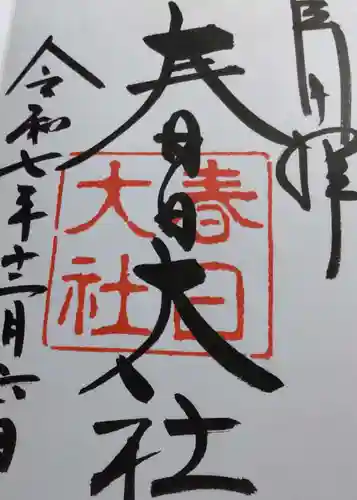 奉拝
春日大社
春日大社
令和七年十二月六日